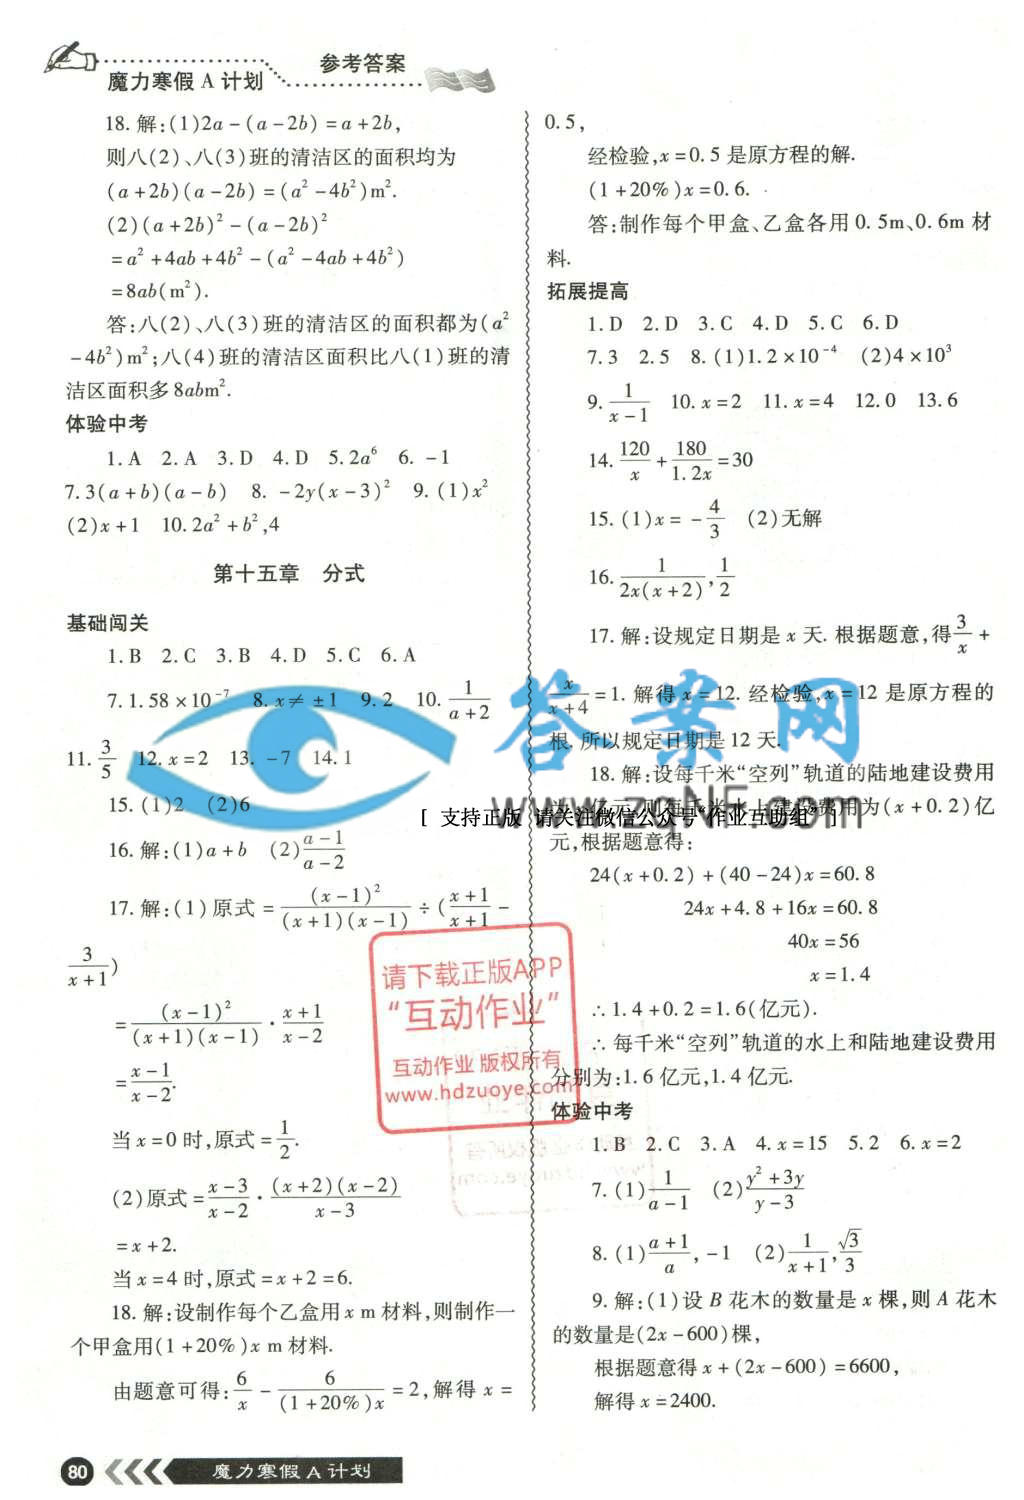 参考答案
魔力寒假 A 计划
18. 解:(1)2a-(a-2b)=a+2b,
则八(2)、八(3)班的清洁区的面积均为
(a+2b)(a-2b)=(a²-4b²)m².
(2)(a+2b)²-(a-2b)²
=a²+4ab+4b²-(a²-4ab+4b²)
=8ab(m²).
答:八(2)、八(3)班的清洁区的面积都为(a²
-4b²)m²;八(4)班的清洁区面积比八(1)班的清
洁区面积多8abm².
体验中考
1. A 2. A 3. D 4. D 5. 2a⁶ 6. -1
7. 3(a+b)(a-b) 8. -2y(x-3)² 9. (1)x²
(2)x+1 10. 2a²+b²,4
第十五章 分式
基础闯关
1. B 2. C 3. B 4. D 5. C 6. A
7. 1.58×10⁻⁷ 8. x≠±1 9. 2 10. 1/(a+2)
11. 3/5 12. x=2 13. -7 14. 1
15. (1)2 (2)6
16. 解:(1)a+b (2)(a-1)/(a-2)
17. 解:(1)原式=(x-1)²/((x+1)(x-1))÷((x+1)/(x+1)-
3/(x+1))
=(x-1)²/((x+1)(x-1))·(x+1)/(x-2)
=(x-1)/(x-2).
当x=0时,原式=1/2.
(2)原式=(x-3)/(x-2)·(x+2)(x-2)/(x-3)
=x+2.
当x=4时,原式=x+2=6.
18. 解:设制作每个乙盒用x m材料,则制作一
个甲盒用(1+20%)x m材料.
由题意可得:6/x-6/((1+20%)x)=2,解得x=
0.5,
经检验,x=0.5是原方程的解.
(1+20%)x=0.6.
答:制作每个甲盒、乙盒各用0.5m、0.6m材
料.
拓展提高
1. D 2. D 3. C 4. D 5. C 6. D
7. 3 2. 5 8. (1)1.2×10⁻⁴ (2)4×10³
9. 1/(x-1) 10. x=2 11. x=4 12. 0 13. 6
14. 120/x+180/1.2x=30
15. (1)x=-4/3 (2)无解
16. 1/(2x(x+2)),1/2
17. 解:设规定日期是x天. 根据题意,得3/x+
x/(x+4)=1. 解得x=12. 经检验,x=12是原方程的
根. 所以规定日期是12天.
18. 解:设每千米“空列”轨道的陆地建设费用
亿元,则每千米水上建设费用为(x+0.2)亿
元,根据题意得:
24(x+0.2)+(40-24)x=60.8
24x+4.8+16x=60.8
40x=56
x=1.4
∴1.4+0.2=1.6(亿元).
∴每千米“空列”轨道的水上和陆地建设费用
分别为:1.6亿元,1.4亿元.
体验中考
1. B 2. C 3. A 4. x=15 5. 2 6. x=2
7. (1)1/(a-1) (2)(y²+3y)/(y-3)
8. (1)(a+1)/a,-1 (2)1/(x+1),√3/3
9. 解:(1)设B花木的数量是x棵,则A花木
的数量是(2x-600)棵,
根据题意得x+(2x-600)=6600,
解得x=2400.
答案网
www.zqNF.com
[ 支持正版 请关注微信公众号“作业互助组” ]
请下载正版APP
“互动作业”
互动作业 版权所有
www.hdzuoye.com
80 魔力寒假 A 计划